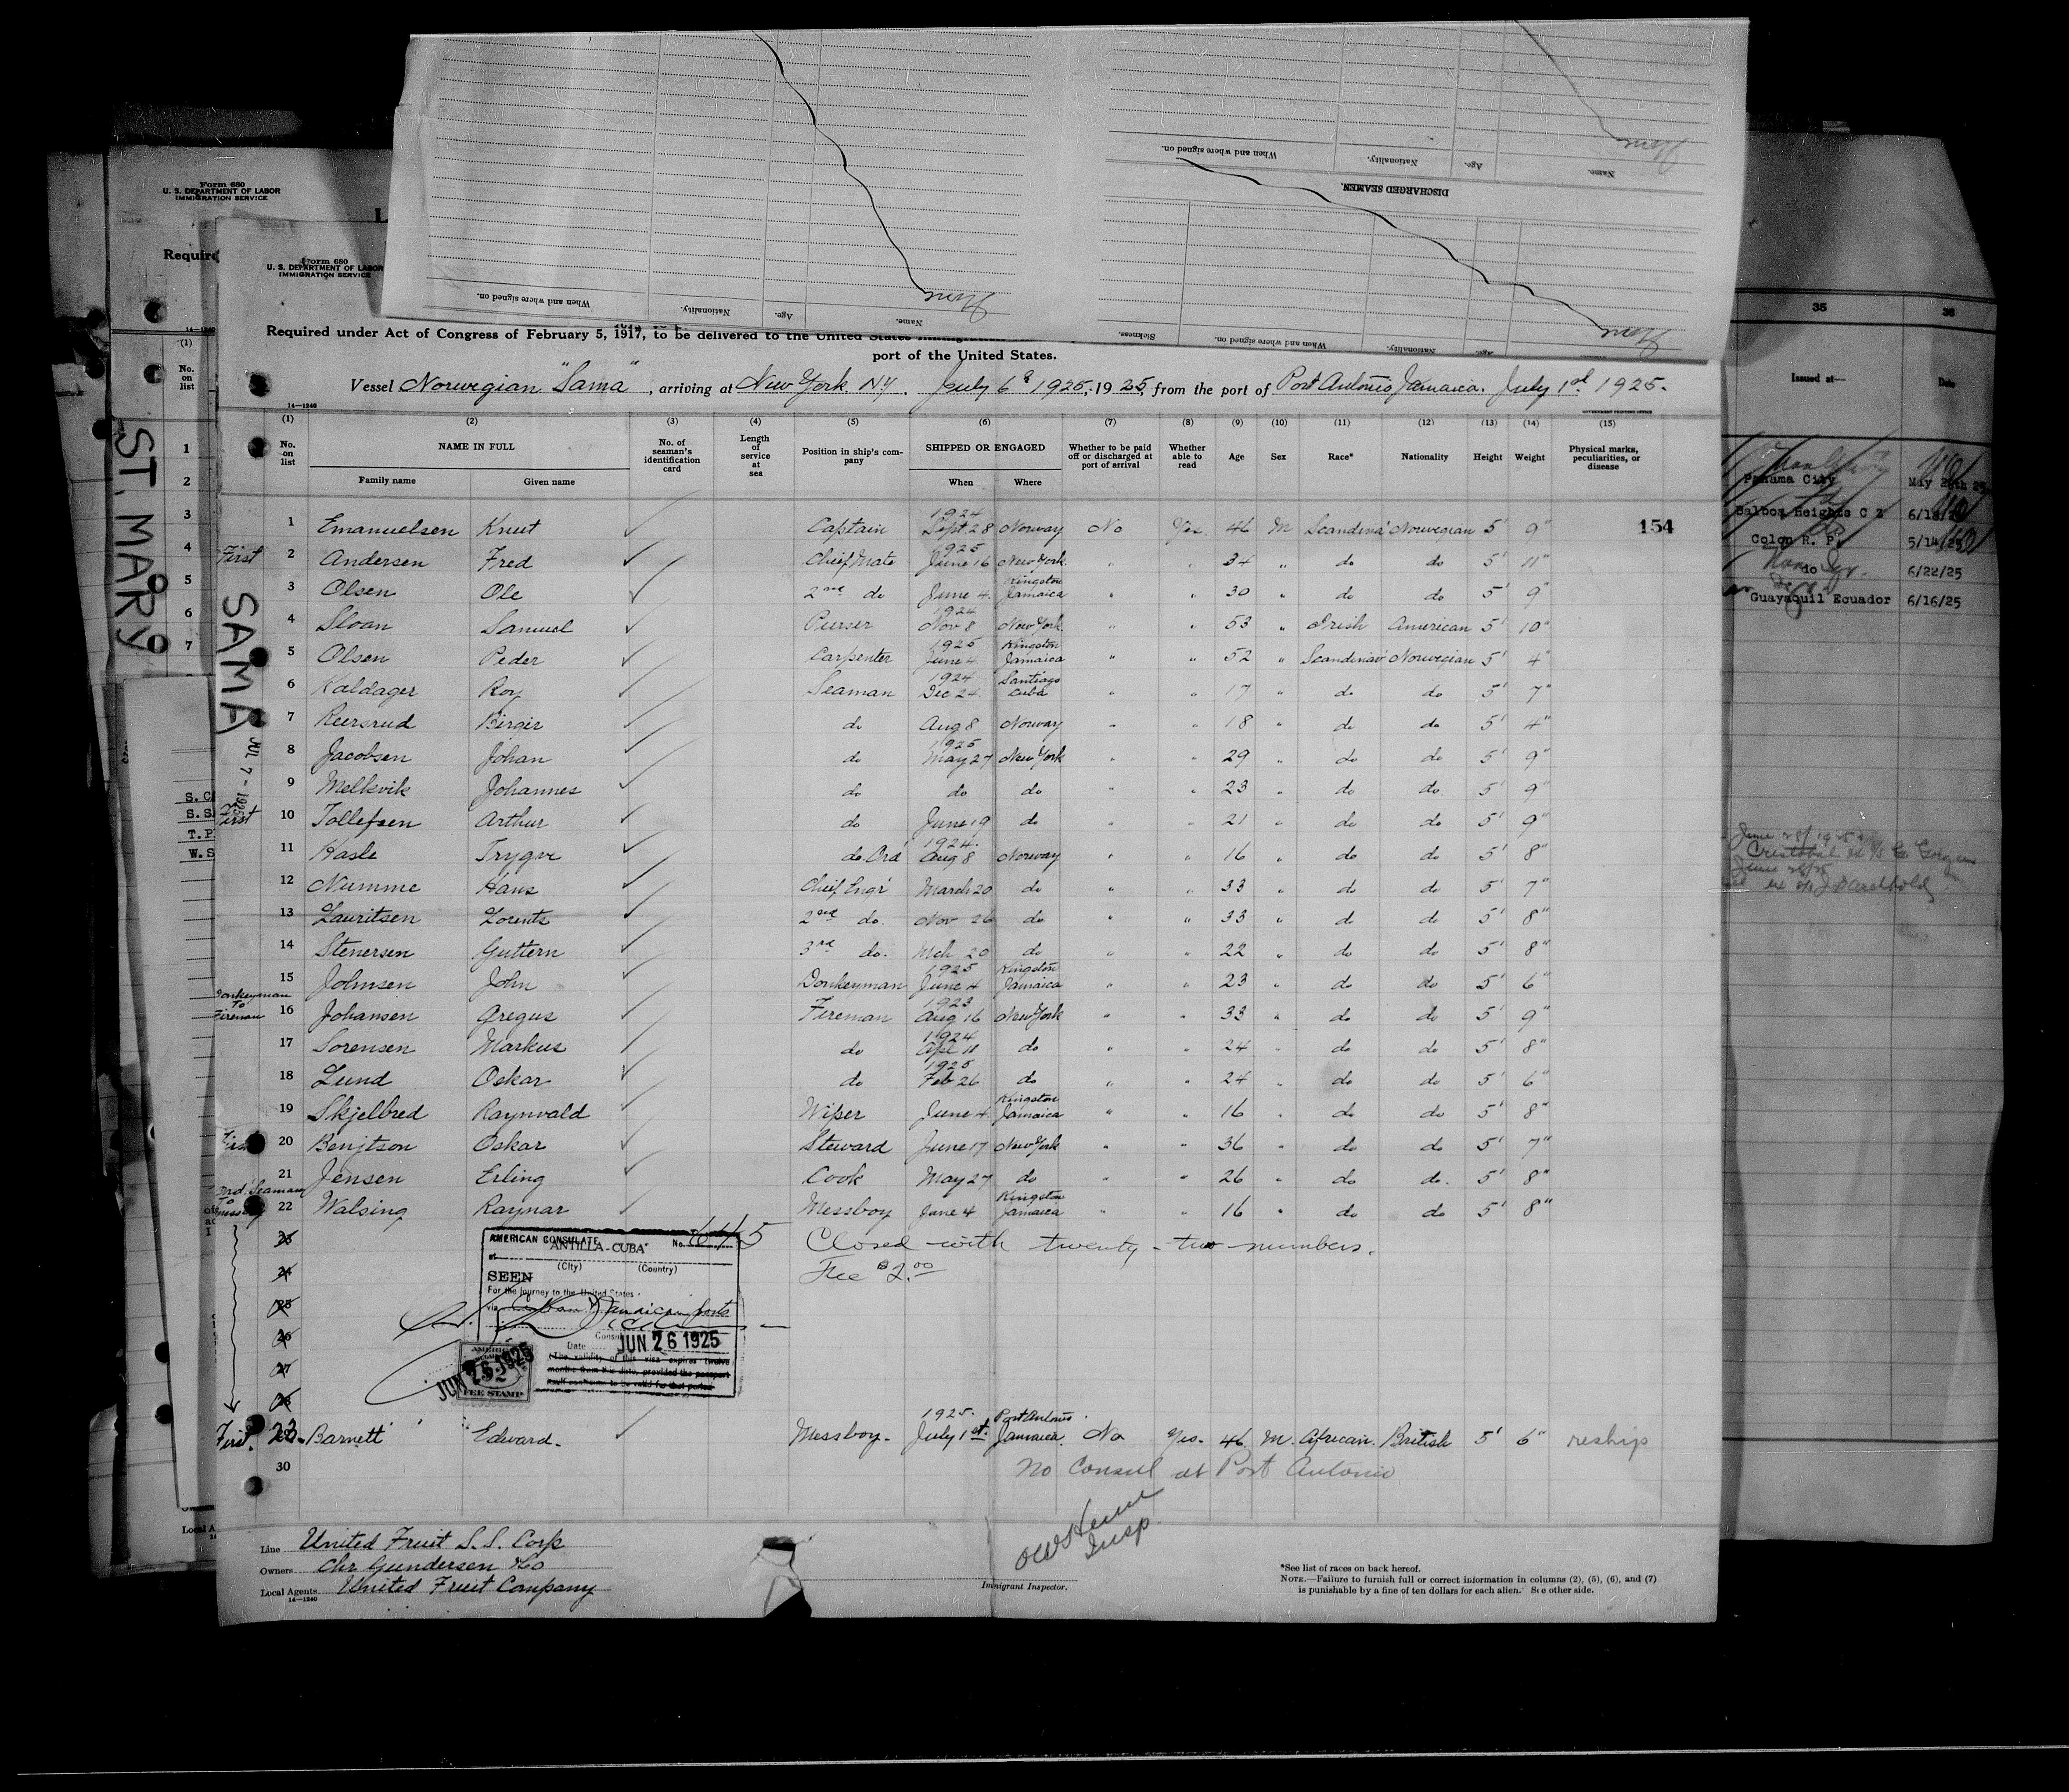 Form 680
U. S. DEPARTMENT OF LABOR
IMMIGRATION SERVICE
Form 680
U. S. DEPARTMENT OF LABOR
IMMIGRATION SERVICE
When and where signed on.
Nationality.
Age.
Name.
DISCHARGED SEAMEN.
When and where signed on.
Nationality.
Age.
Name.
Sickness.
When and where signed on.
Nationality.
Age.
Name.
Required under Act of Congress of February 5, 1917, to be delivered to the United States
port of the United States.
Vessel Norwegian "Sama", arriving at New York NY. July 6th 1925, 1925, from the port of Port Antonio Jamaica. July 1st 1925.
14—1240
(1) (2) (3) (4) (5) (6) (7) (8) (9) (10) (11) (12) (13) (14) (15)
No. on list
NAME IN FULL
Family name Given name
No. of seaman's identification card
Length of service at sea
Position in ship's company
SHIPPED OR ENGAGED
When Where
Whether to be paid off or discharged at port of arrival
Whether able to read
Age
Sex
Race*
Nationality
Height
Weight
Physical marks, peculiarities, or disease
154
1 Emanuelsen Knut Captain 1924 Sept 28 Norway No Yes 46 M Scandina' Norwegian 5' 9"
First 2 Andersen Fred Chief Mate 1925 June 16 New York " " 34 " do do 5' 11"
3 Olsen Ole 2nd do June 4 Kingston Jamaica " " 30 " do do 5' 9"
4 Sloan Samuel Purser 1924 Nov 8 New York " " 53 " Irish American 5' 10"
5 Olsen Peder Carpenter 1925 June 4 Kingston Jamaica " " 52 " Scandinav' Norwegian 5' 4"
6 Kaldager Roy Seaman 1924 Dec 24 Santiago Cuba " " 17 " do do 5' 7"
7 Reersrud Birger do Aug 8 Norway " " 18 " do do 5' 4"
8 Jacobsen Johan do 1925 May 27 New York " " 29 " do do 5' 9"
9 Melkvik Johannes do do do " " 23 " do do 5' 9"
First 10 Tollefsen Arthur do June 19 do " " 21 " do do 5' 9"
11 Hasle Trygve do. Ord' 1924. Aug 8 Norway " " 16 " do do 5' 8"
12 Numme Hans Chief Engr March 20 do " " 33 " do do 5' 7"
13 Lauritsen Lorents 2nd do. Nov 26 do " " 33 " do do 5' 8"
14 Stenersen Guttern 3rd do. Mch 20 do " " 22 " do do 5' 8"
15 Johnsen John Donkeyman 1925 June 4 Kingston Jamaica " " 23 " do do 5' 6"
Donkeyman To Fireman 16 Johansen Gregus Fireman 1923 Aug 16 New York " " 33 " do do 5' 9"
17 Sorensen Markus do 1924 Apl 11 do " " 24 " do do 5' 8"
18 Lund Oskar do 1925 Feb 26 do " " 24 " do do 5' 6"
19 Skjelbred Raynvald Wiper June 4 Kingston Jamaica " " 16 " do do 5' 8"
First 20 Benjtson Oskar Steward June 17 New York " " 36 " do do 5' 7"
21 Jensen Erling Cook May 27 do " " 26 " do do. 5' 8"
Ord' Seaman To Messboy 22 Walsing Raynar Messboy June 4 Kingston Jamaica " " 16 " do do 5' 8"
23
24
25
26
27
28
Closed with twenty-two numbers.
Fee $2.00
AMERICAN CONSULATE No.
at ANTILLA-CUBA
(City) (Country)
SEEN
For the journey to the United States
via Cuban & Jamaican ports
Date JUN 26 1925
(The validity of this visa expires twelve
months from this date, provided the passport
itself continues to be valid for that period
JUN 26 1925
FEE STAMP
First. 23. Barnett Edward. Messboy. 1925. July 1st. Port Antonio Jamaica. No Yes. 46. M. African. British 5' 6" reship
30
No Consul at Port Antonio
Insp
Immigrant Inspector.
Line United Fruit S.S. Corp
Owners Chr Gundersen & Co
Local Agents United Fruit Company
14—1240
*See list of races on back hereof.
NOTE.—Failure to furnish full or correct information in columns (2), (5), (6), and (7)
is punishable by a fine of ten dollars for each alien. See other side.
SAMA
JUL 7 - 1925
ST. MARY
Require
14—1240
(1)
No. on list
1
2
3
4
5
6
7
S. S.
T. P
W. S
Local A
35 36
Issued at— Date
Panama City May 26th 25
Balboa Heights C Z 6/18/25
Colon R. P. 5/14/25
do 6/22/25
Guayaquil Ecuador 6/16/25